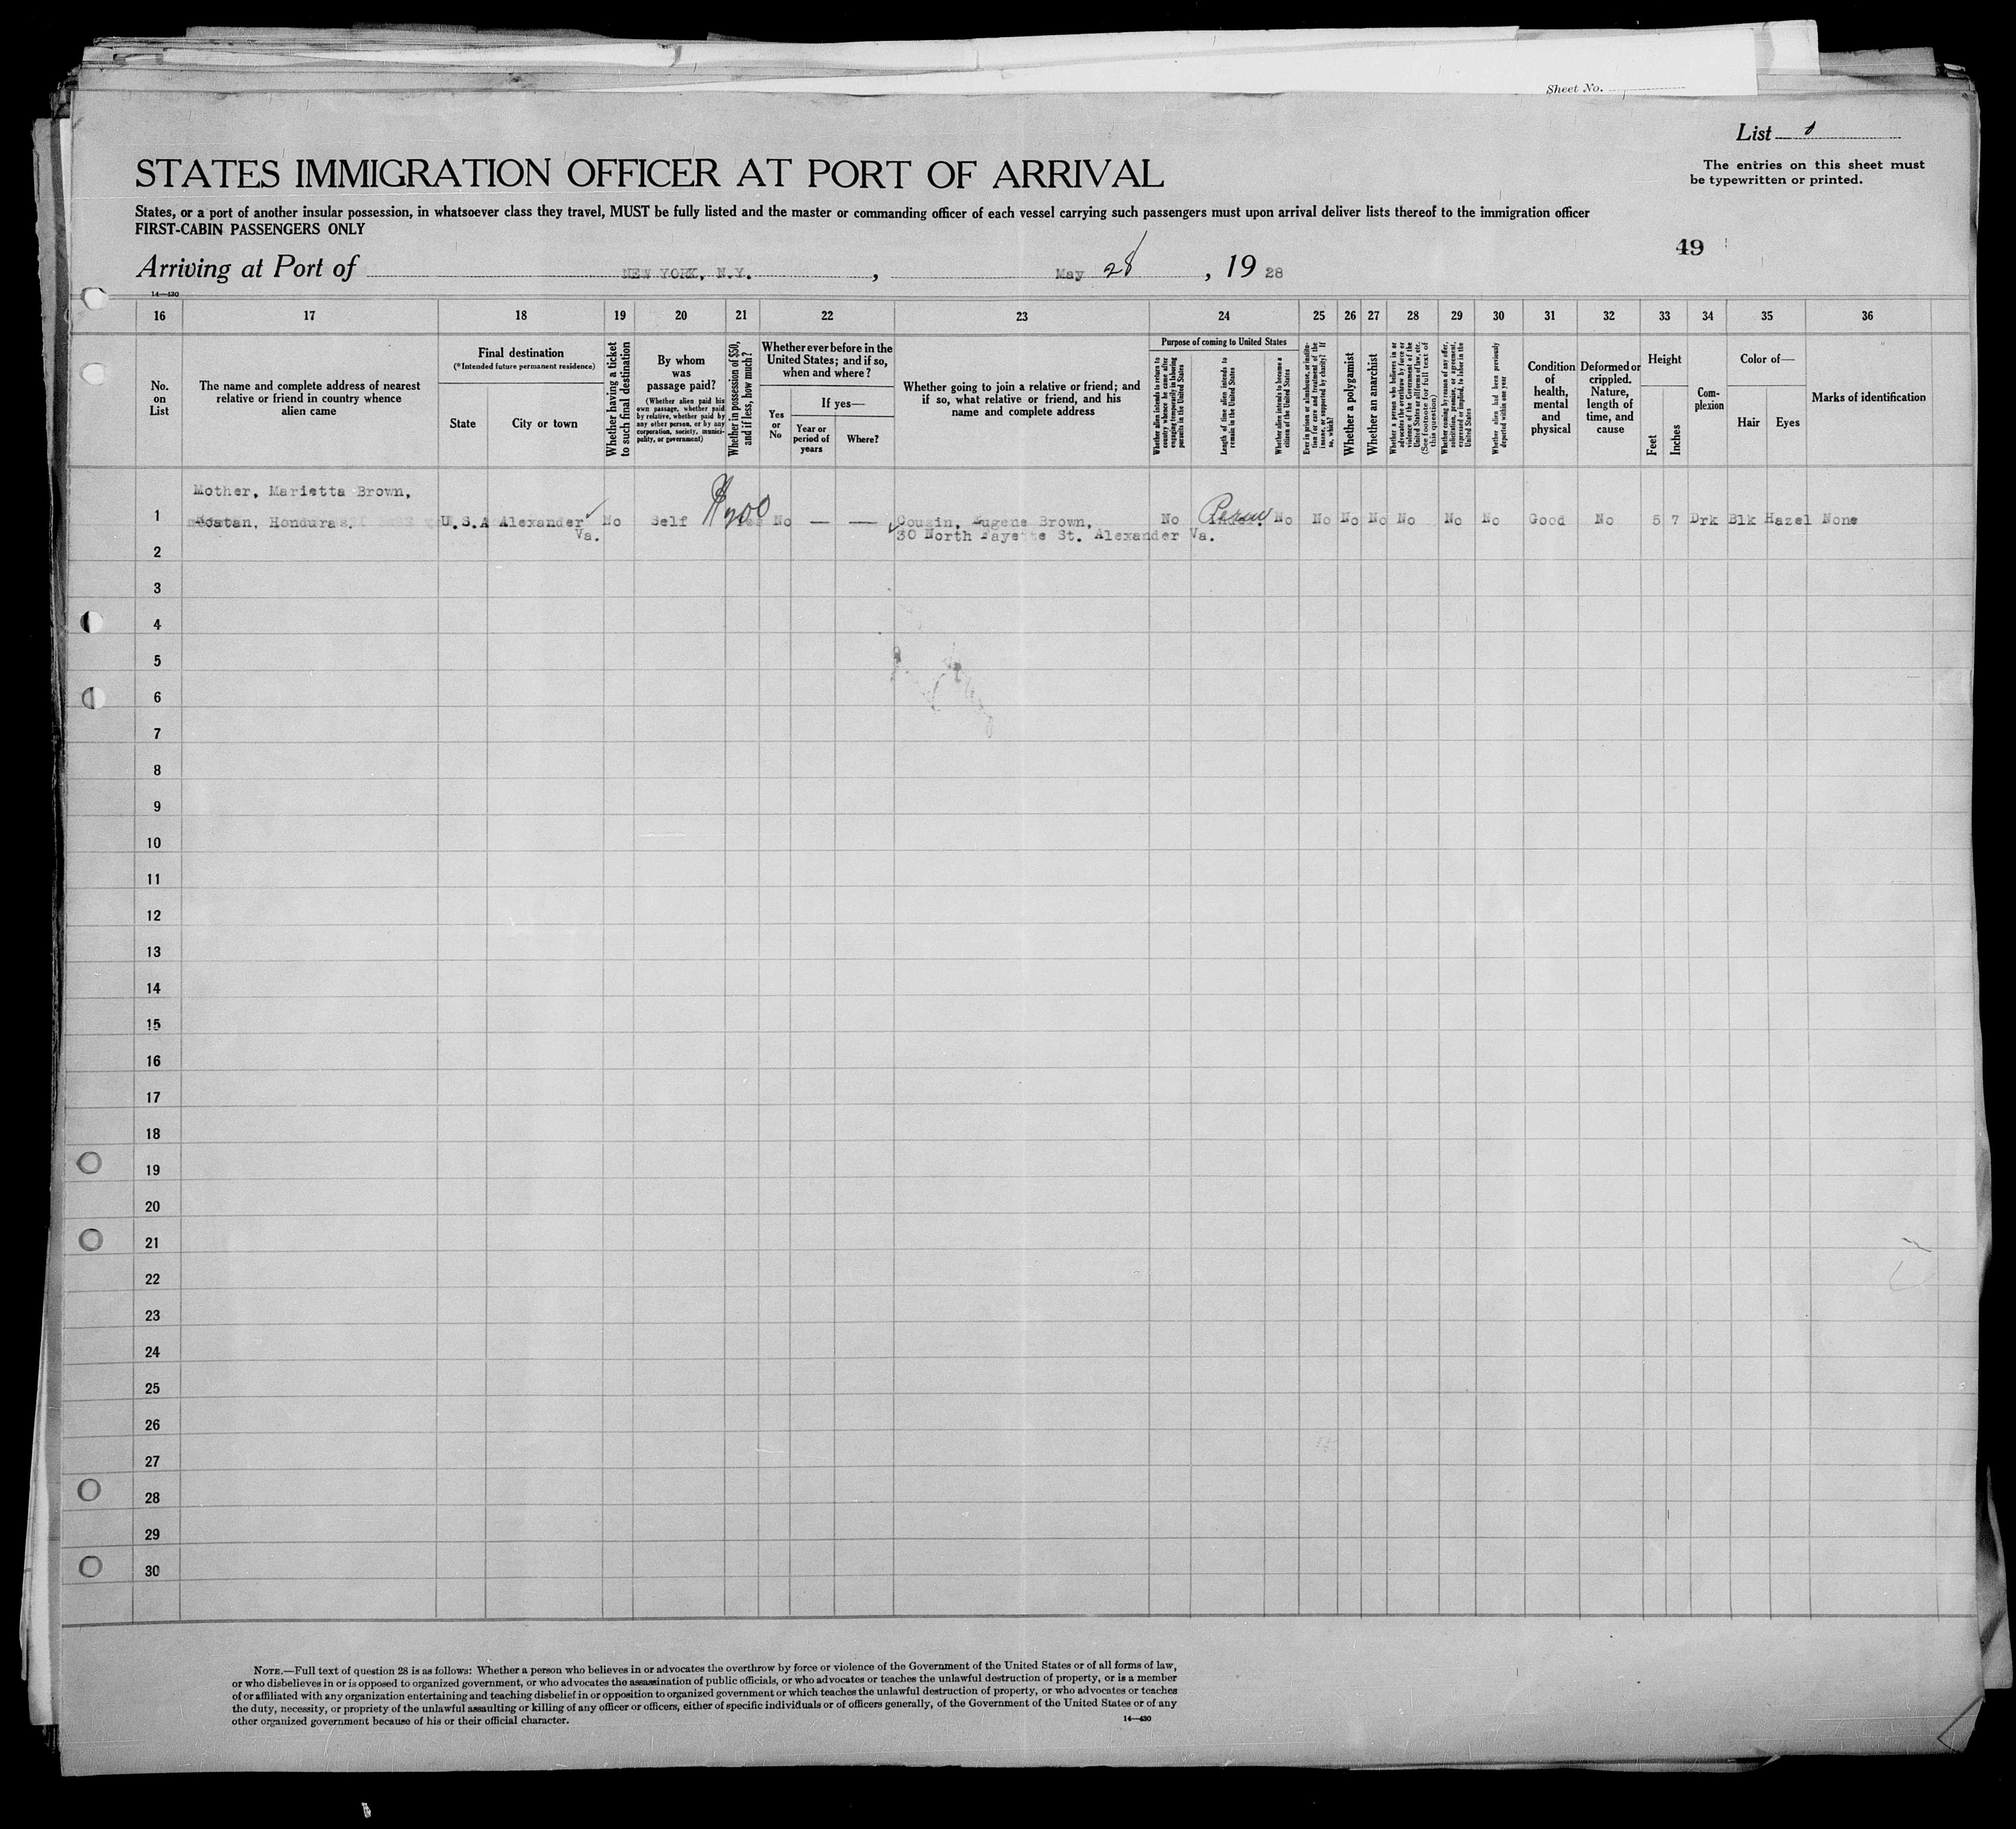 Sheet No.
List
The entries on this sheet must
be typewritten or printed.
STATES IMMIGRATION OFFICER AT PORT OF ARRIVAL
States, or a port of another insular possession, in whatsoever class they travel, MUST be fully listed and the master or commanding officer of each vessel carrying such passengers must upon arrival deliver lists thereof to the immigration officer
FIRST-CABIN PASSENGERS ONLY
49
Arriving at Port of NEW YORK, N.Y., May 28, 1928
14—430
16 17 18 19 20 21 22 23 24 25 26 27 28 29 30 31 32 33 34 35 36
No.
on
List
The name and complete address of nearest
relative or friend in country whence
alien came
Final destination
(*Intended future permanent residence)
State
City or town
Whether having a ticket
to such final destination
By whom
was
passage paid?
(Whether alien paid his
own passage, whether paid
by relative, whether paid by
any other person, or by any
corporation, society, munici-
pality, or government)
Whether in possession of $50,
and if less, how much?
Whether ever before in the
United States; and if so,
when and where?
Yes
or
No
If yes—
Year or
period of
years
Where?
Whether going to join a relative or friend; and
if so, what relative or friend, and his
name and complete address
Purpose of coming to United States
Whether alien intends to return to
country whence he came after
engaging temporarily in laboring
pursuits in the United States
Length of time alien intends to
remain in the United States
Whether alien intends to become a
citizen of the United States
Ever in prison or almshouse, or institu-
tion for care and treatment of the
insane, or supported by charity? If
so, which?
Whether a polygamist
Whether an anarchist
Whether a person who believes in or
advocates the overthrow by force or
violence of the Government of the
United States or all forms of law, etc.
(See footnote for full text of
this question)
Whether coming by reason of any offer,
solicitation, promise, or agreement,
expressed or implied, to labor in the
United States
Whether alien had been previously
deported within one year
Condition
of
health,
mental
and
physical
Deformed or
crippled.
Nature,
length of
time, and
cause
Height
Feet
Inches
Com-
plexion
Color of—
Hair
Eyes
Marks of identification
Mother, Marietta Brown,
1 Roatan, Honduras. U.S.A Alexander No Self $200 No — — Cousin, Eugene Brown, No Perm No No No No No No No Good No 5 7 Drk Blk Hazel None
Va. 30 North Fayette St. Alexander Va.
2
3
4
5
6
7
8
9
10
11
12
13
14
15
16
17
18
19
20
21
22
23
24
25
26
27
28
29
30
NOTE.—Full text of question 28 is as follows: Whether a person who believes in or advocates the overthrow by force or violence of the Government of the United States or of all forms of law,
or who disbelieves in or is opposed to organized government, or who advocates the assassination of public officials, or who advocates or teaches the unlawful destruction of property, or is a member
of or affiliated with any organization entertaining and teaching disbelief in or opposition to organized government or which teaches the unlawful destruction of property, or who advocates or teaches
the duty, necessity, or propriety of the unlawful assaulting or killing of any officer or officers, either of specific individuals or of officers generally, of the Government of the United States or of any
other organized government because of his or their official character.
14—430